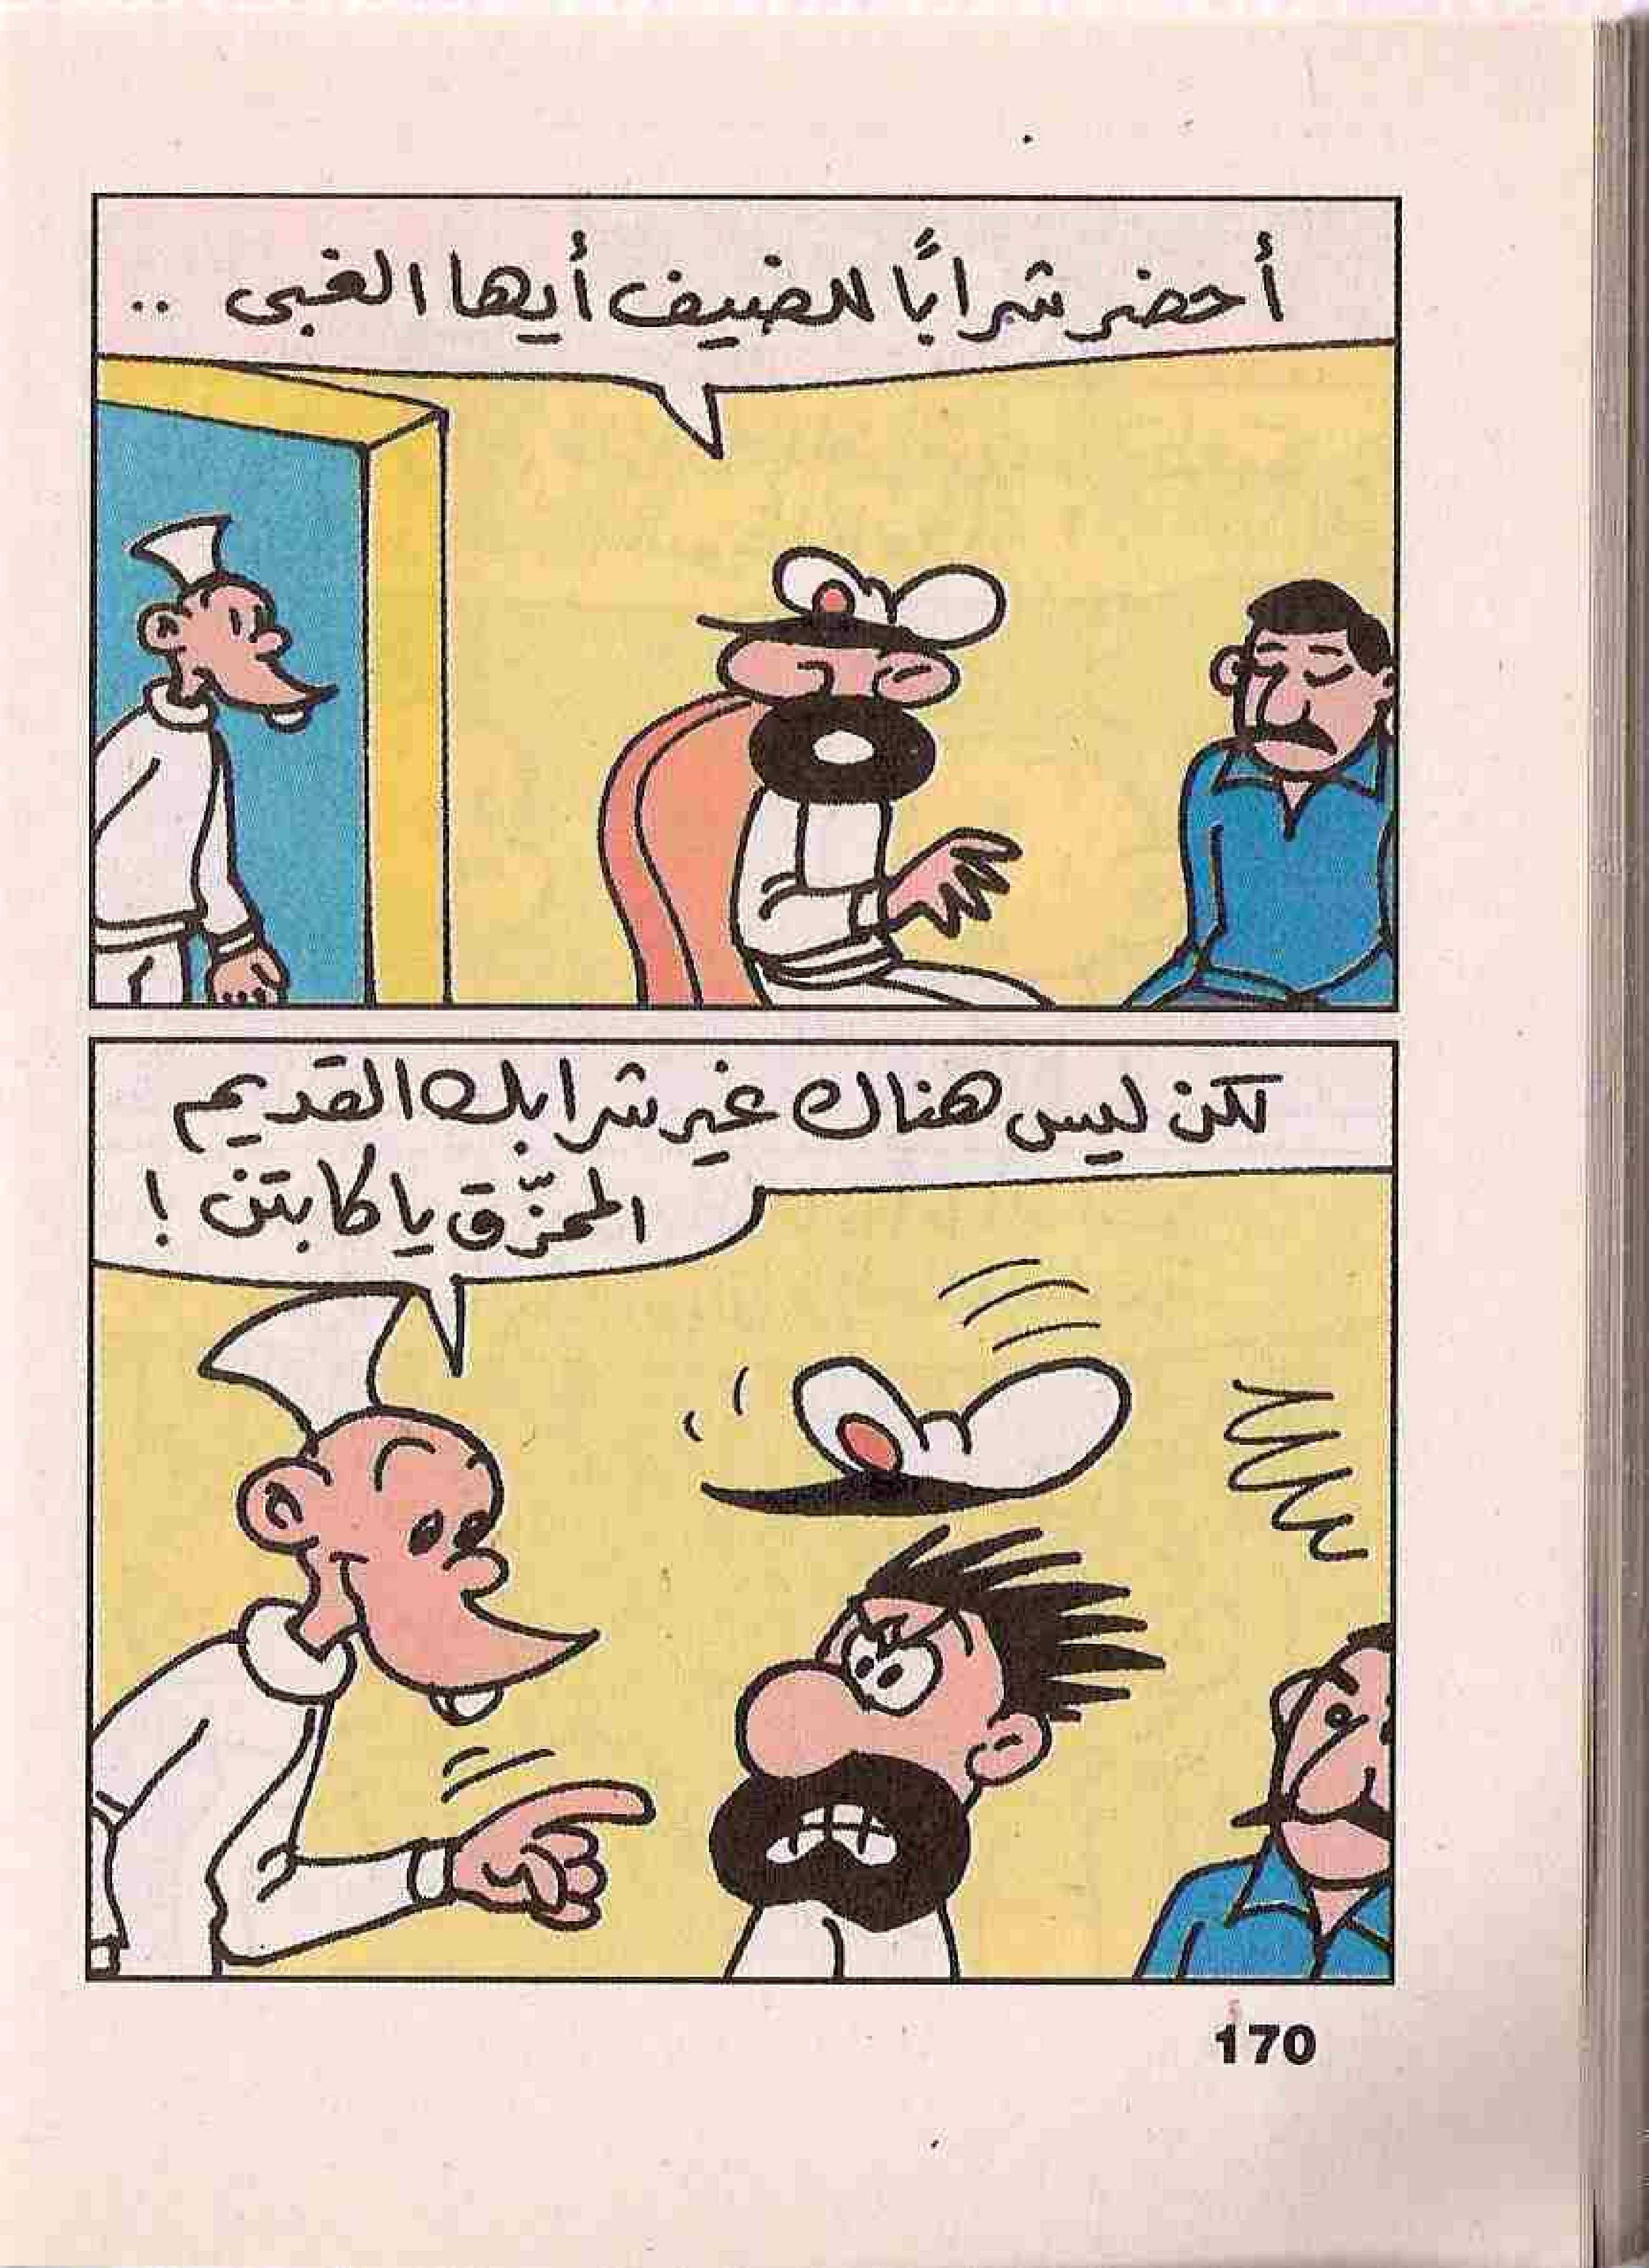 أحضر شرابًا للضيف أيها الغبى ..
لكن ليس هناك غير شرابك القديم
الممزّق يا كابتن !
170